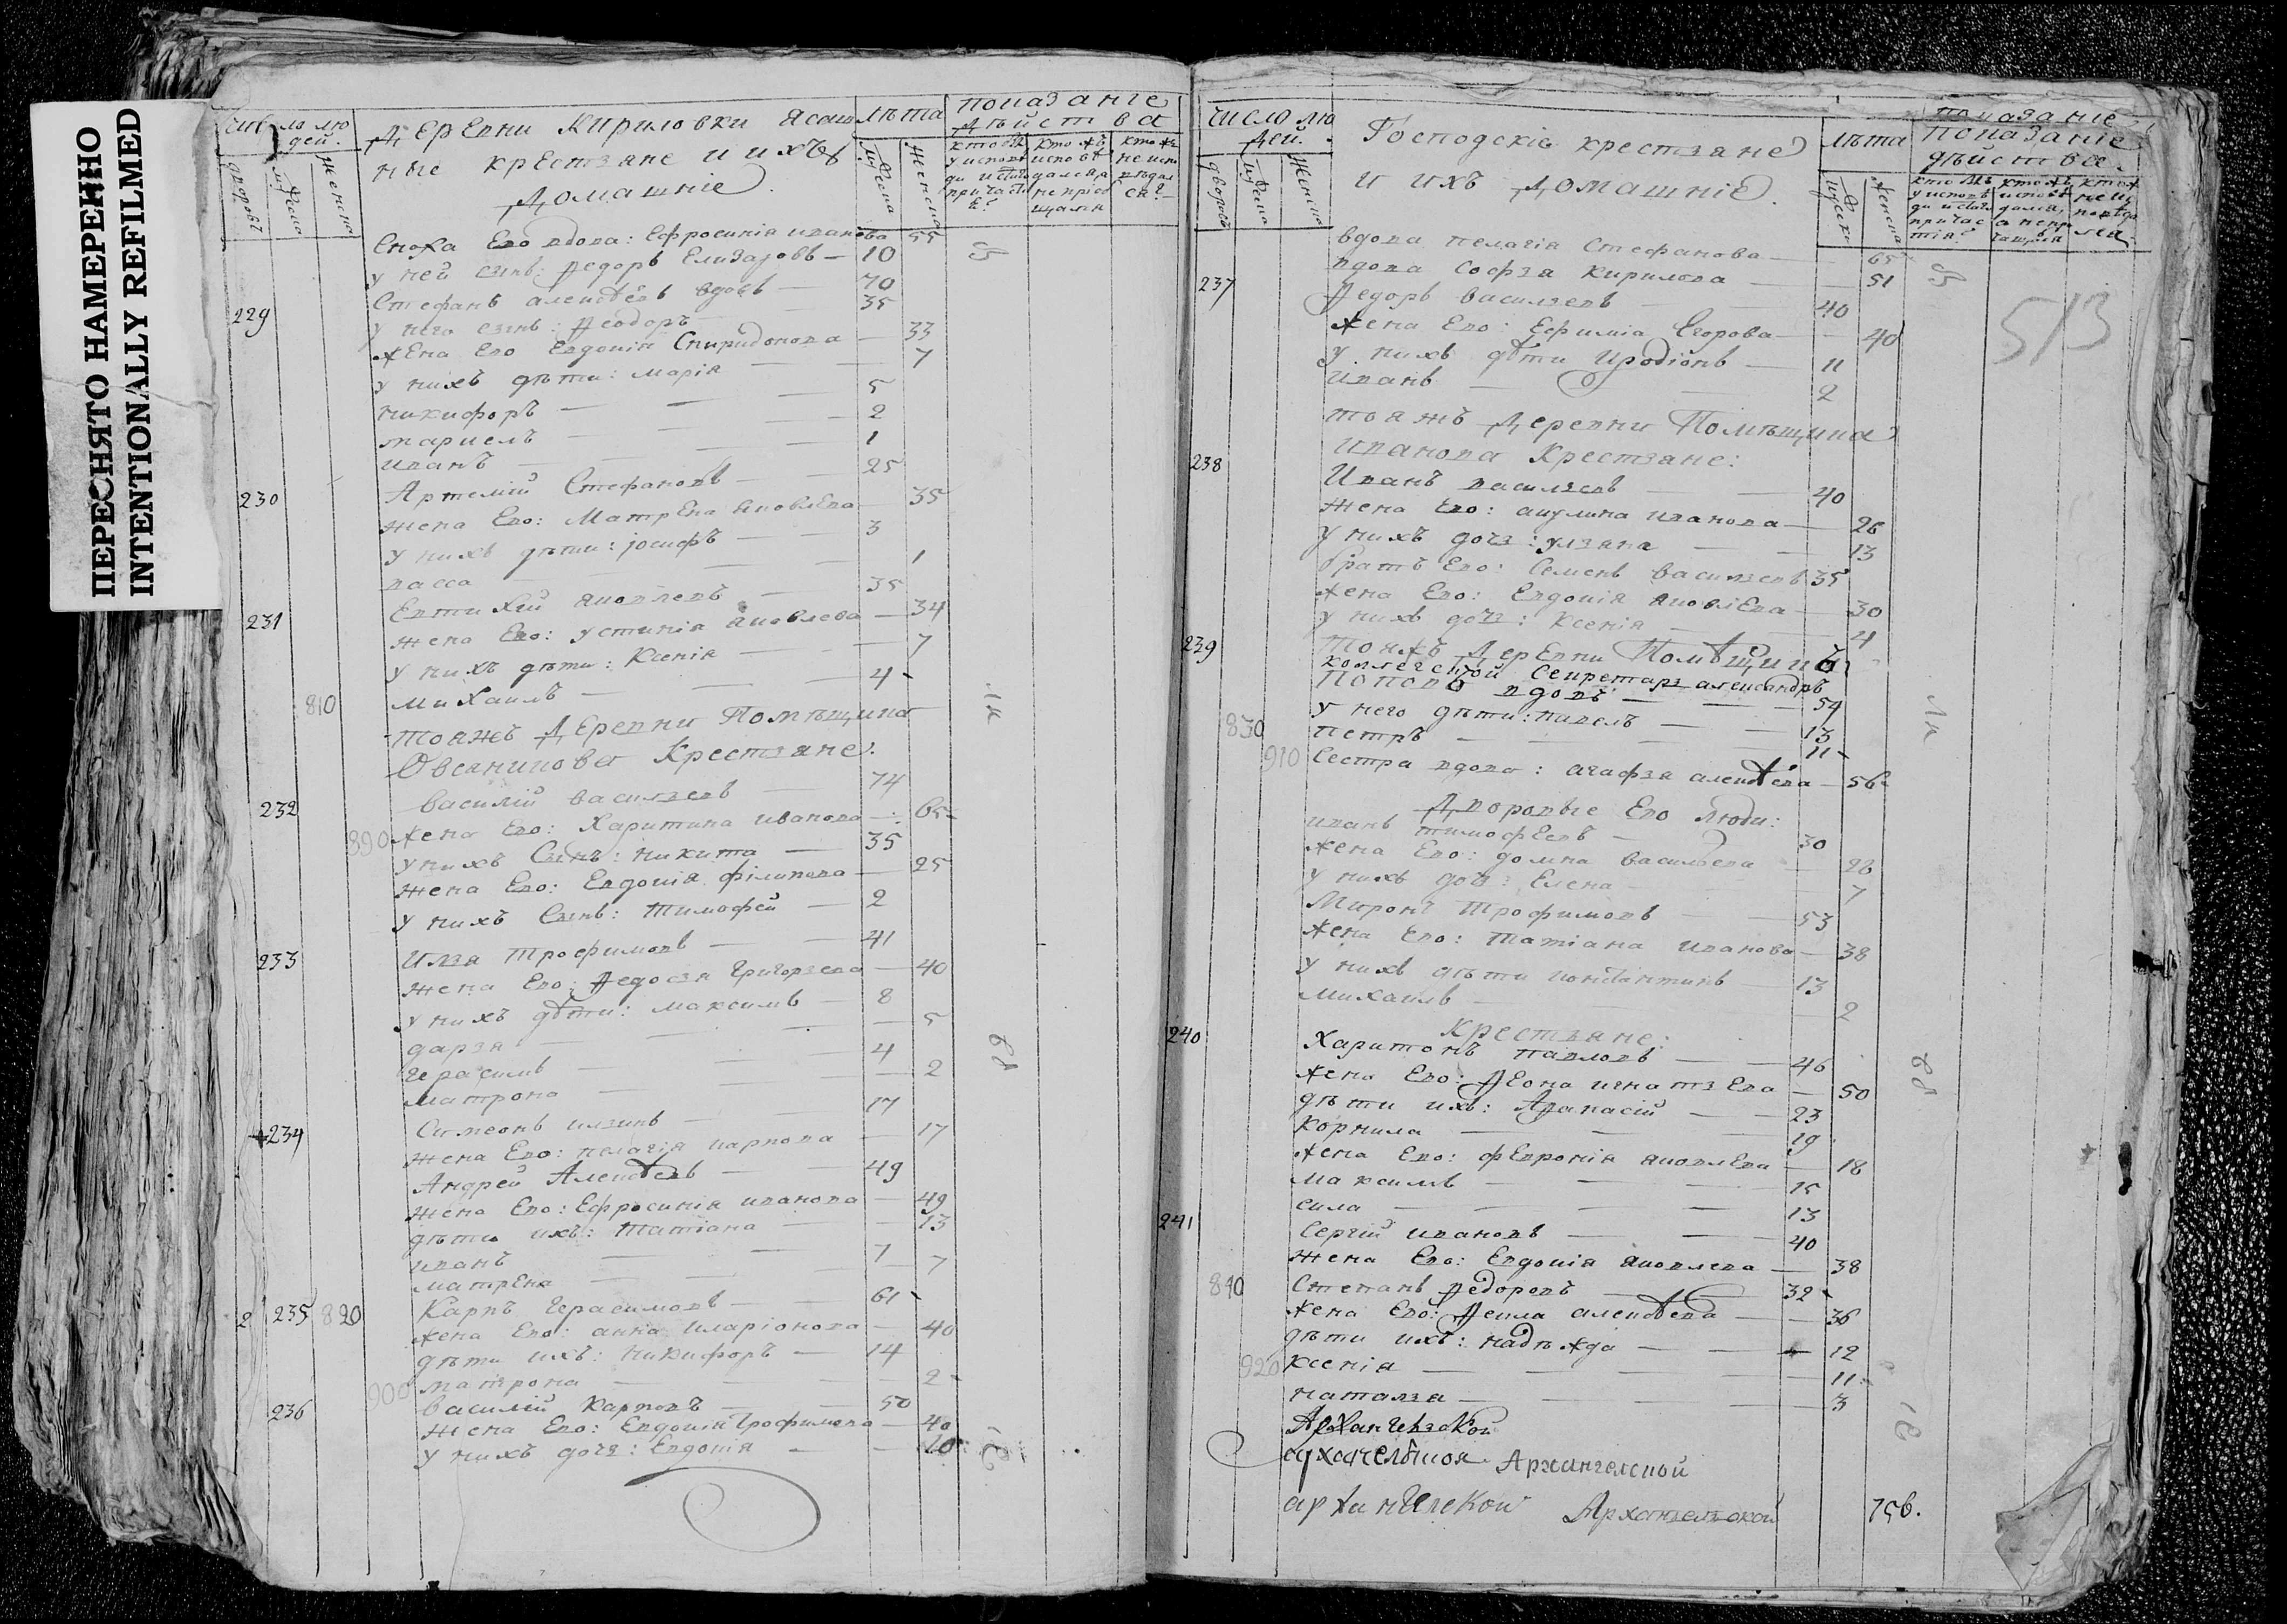 ПЕРЕСНЯТО НАМЕРЕННО
INTENTIONALLY REFILMED
число людей.
дворовъ
мужеска
женска
Деревни Кириловки ясаш
ные крестьяне и ихъ
домашніе
лѣта
мужеска
женска
показаніе
дѣйства
Сноха Его вдова: Ефросинія иванова 55
у ней сынъ: Ѳедоръ Елизаровъ 10
229 Стефанъ алексѣевъ вдовъ 70
у него сынъ: Ѳеодоръ 35
жена Его Евдокія Спиридонова 33
у нихъ дѣти: марія 7
никифоръ 5
маркелъ 2
иванъ 1
230 Артемій Стефановъ 25
жена Его: Матрена яковлева 35
у нихъ дѣти: іосифъ 3
васса 1
231 Евтихій яковлевъ 35
жена Его: устинія яковлева 34
у нихъ дѣти: Ксенія 7
810 михаилъ 4
тояжъ Деревни Помѣщика
Овсяникова Крестьяне:
232 василій васильевъ 74
890 жена Его: Харитина иванова 65
у нихъ Сынъ: никита 35
жена Его: Евдокія філипова 25
у нихъ Сынъ: тимофей 2
233 Илья трофимовъ 41
жена Его: Ѳедосья Григорьева 40
у нихъ дѣти: максимъ 8
дарья 5
герасимъ 4
матрона 2
234 Симеонъ ильинъ 17
жена Его: пелагія карпова 17
Андрей Алексѣевъ 49
жена Его: Ефросинія иванова 49
дѣти ихъ: татіана 13
иванъ 7
матрена 7
2 235 820 Карпъ герасимовъ 61
жена Его: анна иларіонова 40
дѣти ихъ: никифоръ 14
900 матрона 2
236 василій карповъ 50
жена Его: Евдокія Трофимова 40
у нихъ дочь: Евдокія 20
число лю
дей.
дворовъ
мужеска
женска
Господскіе крестьяне
и ихъ домашніе.
лѣта
показаніе
показаніе
дѣйства
513
вдова пелагія Стефанова 65
вдова софья кирилова 51
237 Ѳедоръ васильевъ 40
жена Его: Ефимія Егорова 40
у нихъ дѣти Иродіонъ 11
иванъ 2
тояжъ Деревни Помѣщика
иванова Крестьяне:
238 Иванъ васильевъ 40
жена Его: акулина иванова 26
у нихъ дочь: ульяна 13
братъ Его: Семенъ васильевъ 35
жена Его: Евдокія яковлева 30
у нихъ дочь: Ксенія 4
239 тояжъ Деревни Помѣщикъ
коллегской Секретарь александръ
Поповъ вдовъ 54
у него дѣти: павелъ 13
830 петръ 11
910 Сестра вдова: агафья алексѣева 56
Дворовые Его люди:
иванъ тимофеевъ 30
жена Его: домна васильева 28
у нихъ дочь: Елена 7
Миронъ трофимовъ 53
жена Его: татіана иванова 38
у нихъ дѣти константинъ 13
Михаилъ 2
Крестьяне:
240 Харитонъ павловъ 46
жена Его: Ѳеона игнатьева 50
дѣти ихъ: Аѳанасій 23
корнила 19
жена Его: февронія яковлева 18
максимъ 15
сила 13
241 Сергій ивановъ 40
жена Его: Евдокія яковлева 38
840 Степанъ Ѳедоровъ 32
жена Его: Ѳекла алексѣева 36
дѣти ихъ: надѣжда 12
920 ксенія 11
наталья 3
Архангельской
Архангелской
756.